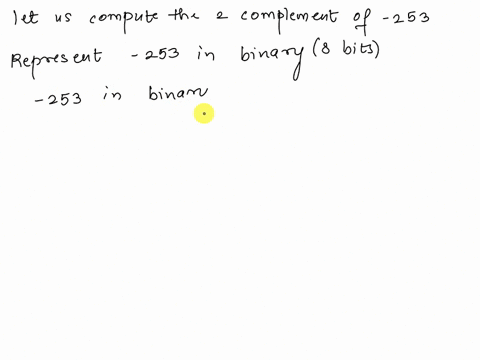 let us compute the 2 complement of -253
Represent -253 in binary (8 bits)
-253 in binar